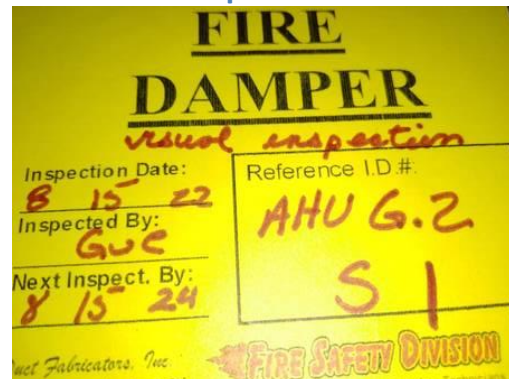 FIRE
DAMPER
visual inspection
Inspection Date:
8 15 22
Inspected By:
GUC
Next Inspect. By:
8 15 24
Reference I.D.#:
AHU G.2
S 1
Duct Fabricators, Inc.
FIRE SAFETY DIVISION